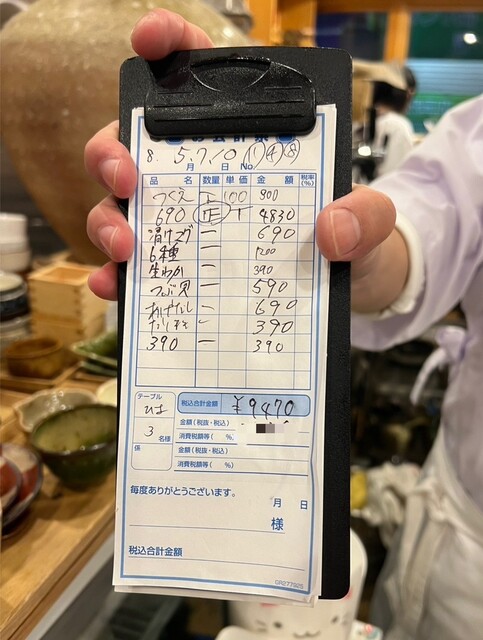 お会計票
8. 5.7/0 ① ④ ⑧
月 日 No.
品 名 数量 単価 金 額 税率(%)
つくえ 100 900
690 正T 4830
一 690
6種 一 1200
生わか 一 390
つぶ貝 一 590
あげだし 一 690
一 390
390 一 390
テーブル
税込合計金額 ¥9470
3 名様
金額(税抜・税込)
消費税額等( %)
係
金額(税抜・税込)
消費税額等( %)
毎度ありがとうございます。
月 日
様
税込合計金額